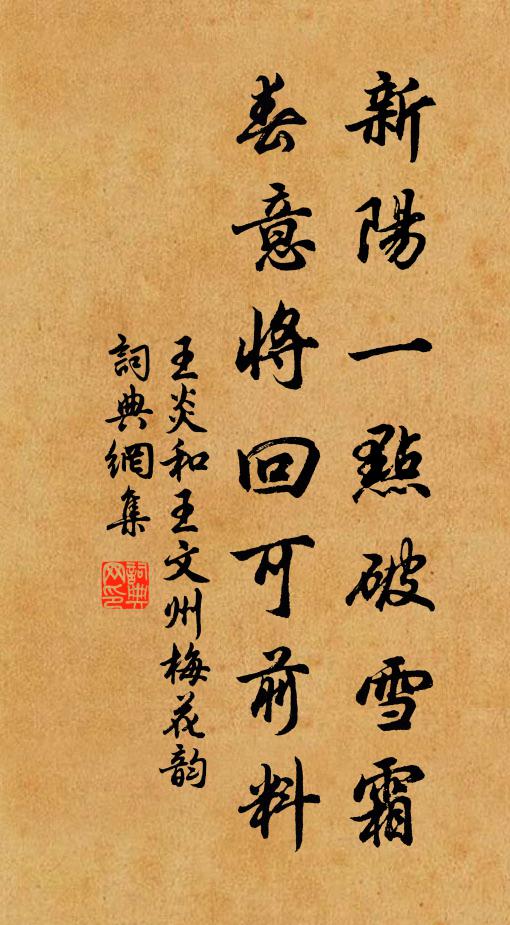 新陽一點破雪霜
春意將回可前料
王炎和王文州梅花韵
詞典網集
詞典网印